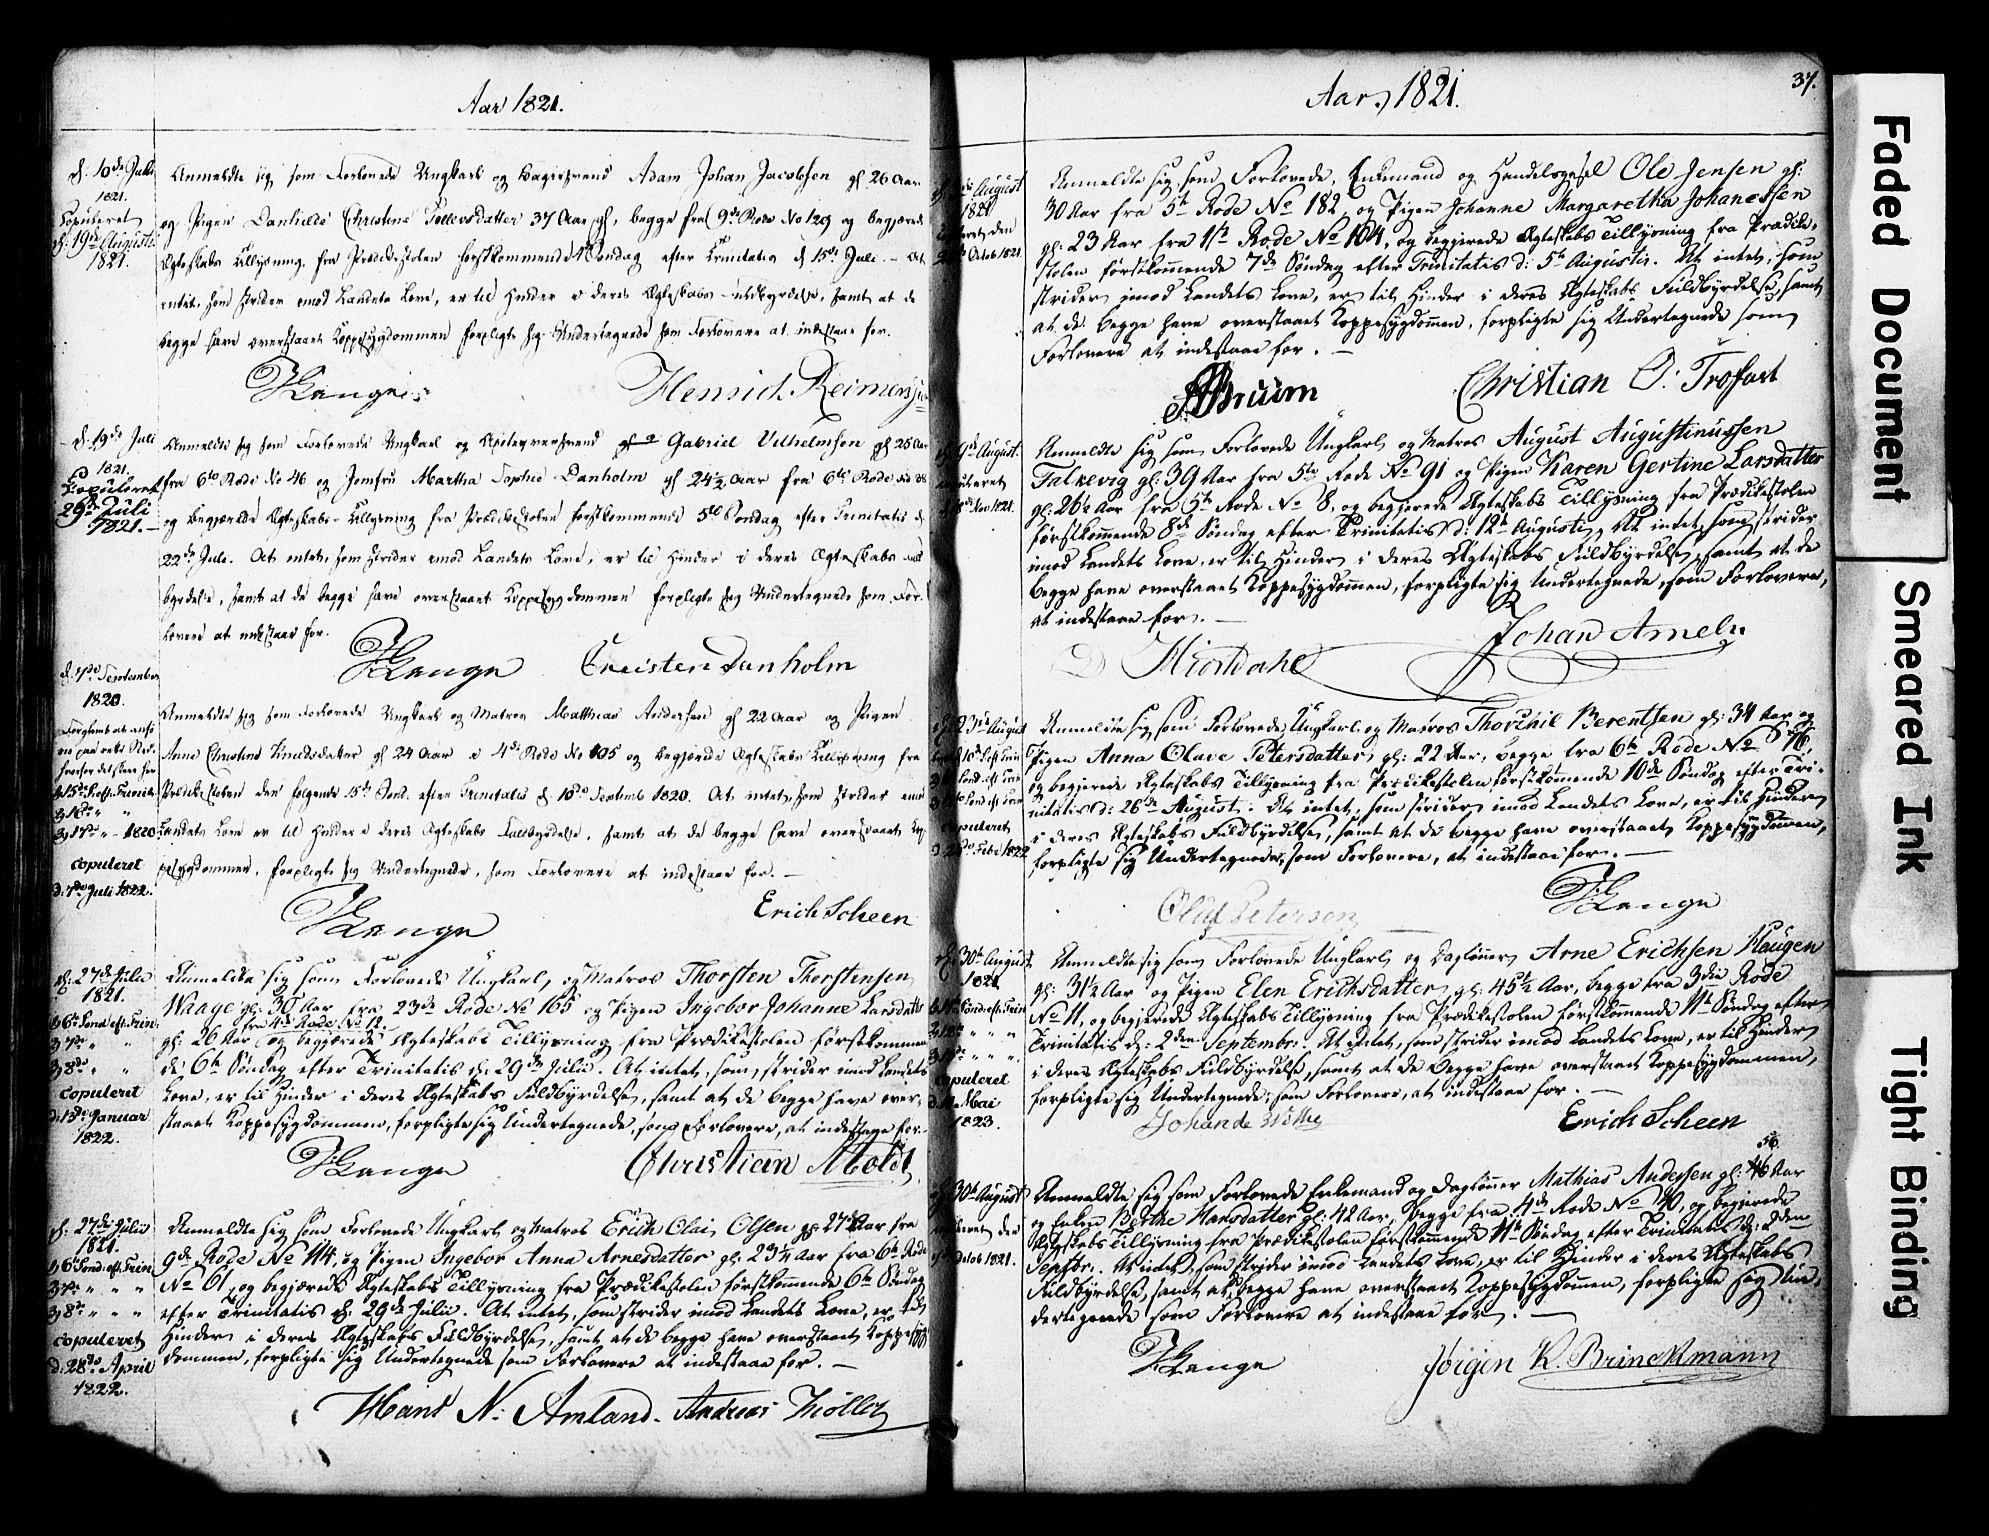 Aar 1821.
d: 10de Julii
1821.
Copuleret
d: 19de Augusti
1821.
Anmeldte sig som Forlovede Ungkarl og Adam Johan Jacobsen gl 26 Aar
og Pigen Christine Tollevsdatter 37 Aar gl, begge fra 9de Rode No 129 og begjærede
Ægteskabs Tillysning fra Prædikestolen førstkommende 4de Søndag efter Trinitatis d 15de Juli. – At
intet, som strider imod Landets Love, er til Hinder i deres Ægteskabs Fuldbyrdelse, samt at de
begge have overstaaet Koppesygdommen forpligte sig Undertegnede som Forlovere at indestaae for.
Lange Henrich Reimers
d: 19de Juli
1821.
Copuleret
29de Juli
1821.–
Anmeldte sig som Forlovede Ungkarl og Gabriel Vilhelmsen gl 25 Aar
fra 6te Rode No 46 og Jomfru Martha Sophie Danholm gl 24½ Aar fra 6te Rode No 38
og begjærede Ægteskabs Tillysning fra Prædikestolen førstkommende 5te Søndag efter Trinitatis d
22de Juli. At intet, som strider imod Landets Love, er til Hinder i deres Ægteskabs Fuld
byrdelse, samt at de begge have overstaaet Koppesygdommen forpligte sig Undertegnede som For
lovere at indestaae for.
Lange Christen Danholm
d. 7de September
1820.
15de S. eft. Trinit.
3 17de " – 1820.
copuleret
d. 7de Juli 1822.
Anmeldte sig som Forlovede Ungkarl og Matros Matthias Andersen gl 22 Aar og Pigen
Anne Christine Knudsdatter gl 24 Aar i 4de Rode No 105 og begjærede Ægteskabs Tillysning fra
Prædikestolen den følgende 15de Sønd. efter Trinitatis d 10de Septemb 1820. At intet, som strider imod
Landets Love er til Hinder i deres Ægteskabs Fuldbyrdelse, samt at de begge have overstaaet Kop
pesygdommen, forpligte sig Undertegnede, som Forlovere at indestaae for. –
Lange Erich Scheen
d: 27de Julii
1821.
6te Sønd. eft. Trin.
3 7de " "
3 8de " "
copuleret
d. 13de Januar
1822.
Anmeldte sig som Forlovede Ungkarl og Matros Thorsten Thorstensen
Waage gl: 30 Aar fra 23de Rode No 165 og Pigen Ingebor Johanne Larsdatter
fra 4de Rode No 12.
gl: 26 Aar og begjærede Ægteskabs Tillysning fra Prædikestolen førstkommen
de 6te Søndag efter Trinitatis d: 29de Julii. At intet, som strider imod Landets
Love, er til Hinder i deres Ægteskabs Fuldbyrdelse, samt at de begge have over-
staaet Koppesygdommen, forpligte sig Undertegnede, som Forlovere, at indestaae for.–
Lange Christian Mold
d: 27de Julii
1821.
6te Sønd: eft. Trin.
3 7de " " "
3 8de " " "
copuleret
d. 28de April
1822.
Anmeldte sig som Forlovede Ungkarl og Matros Erich Olai Olsen gl: 27½ Aar fra
9de Rode No 114, og Pigen Ingebor Anna Arnesdatter gl: 23½ Aar fra 6te Rode
No 61, og begjærede Ægteskabs Tillysning fra Prædikestolen førstkommende 6te Søndag
efter Trinitatis d: 29de Julii. At intet, som strider imod Landets Love, er til
Hinder i deres Ægteskabs Fuldbyrdelse, samt at de begge have overstaaet Koppesyg
dommen, forpligte sig Undertegnede som Forlovere at indestaae for. –
Hans N: Amland. Andreas Møller
Aar 1821.
37.
August
1821
den
Octob 1821
Anmeldte sig som Forlovede, Enkemand og Ole Jensen gl:
30 Aar fra 5te Rode No 182, og Pigen Johanne Margaretha Johanesen
gl: 23 Aar fra 1ste Rode No 104, og begjerede Ægteskabs Tillysning fra Prædike-
stolen førstkommende 7de Søndag efter Trinitatis d: 5te Augusti. At intet, som
strider imod Landets Love, er til Hinder i deres Ægteskabs Fuldbyrdelse, samt
at de begge have overstaaet Koppesygdommen, forpligte sig Undertegnede som
Forlovere at indestaae for. –
Bruun Christian O: Trofast
9de August.
Nov 1821.
Anmeldte sig som Forlovede Ungkarl og Matros August Augustinussen
Falkevig gl: 39 Aar fra 5te Rode No 91 og Pigen Karen Gertine Larsdatter
gl: 26½ Aar fra 5te Rode No 8, og begjerede Ægteskabs Tillysning fra Prædikestolen
førstkommende 8de Søndag efter Trinitatis d: 12te Augusti. At intet, som strider
imod Landets Love, er til Hinder i deres Ægteskabs Fuldbyrdelse, samt at de
begge have overstaaet Koppesygdommen, forpligte sig Undertegnede, som Forlovere,
at indestaae for. –
Hiortdahl Johan Ameln
23de August
copuleret
Febr 1822
Anmeldte sig som Forlovede, Ungkarl og Matros Thorchil Berentsen gl: 34 Aar og
Pigen Anna Olave Petersdatter gl: 22 Aar, begge fra 6te Rode No 76,
og begjerede Ægteskabs Tillysning fra Prædikestolen førstkommende 10de Søndag efter Tri-
nitatis d: 26de August. At intet, som strider imod Landets Love, er til Hinder
i deres Ægteskabs Fuldbyrdelse, samt at de begge have overstaaet Koppesygdommen,
forpligte sig Undertegnede, som Forlovere, at indestaae for. –
Oluf Peterson Lange
30te August
1821.
11te Sønd. eft. Trin
copuleret
Mai
1823.
Anmeldte sig som Forlovede Ungkarl og Daglønner Arne Erichsen Haugen
gl: 31½ Aar og Pigen Elen Erichsdatter gl: 45½ Aar, begge fra 3die Rode
No 11, og begjerede Ægteskabs Tillysning fra Prædikestolen førstkommende 11te Søndag efter
Trinitatis d: 2den Septembr: At intet, som strider imod Landets Love, er til Hinder
i deres Ægteskabs Fuldbyrdelse, samt at de begge have overstaaet Koppesygdommen,
forpligte sig Undertegnede, som Forlovere, at indestaae for. –
Johan de Witte Erich Scheen
30te August
den
Octob 1821.
56
Anmeldte sig som Forlovede Enkemand og Dagløner Mathias Andersen gl: 46 Aar
og Enken Berthe Hansdatter gl: 42 Aar, begge fra 4de Rode No 40, og begjerede
Ægteskabs Tillysning fra Prædikestolen førstkommende 11te Søndag efter Trinitatis d: 2den
Septbr. At intet, som strider imod Landets Love, er til Hinder i deres Ægteskabs
Fuldbyrdelse, samt at begge have overstaaet Koppesygdommen, forpligte sig Un-
dertegnede som Forlovere at indestaae for. –
Lange Jørgen K. Brinckmann
Faded Document
Smeared Ink
Tight Binding